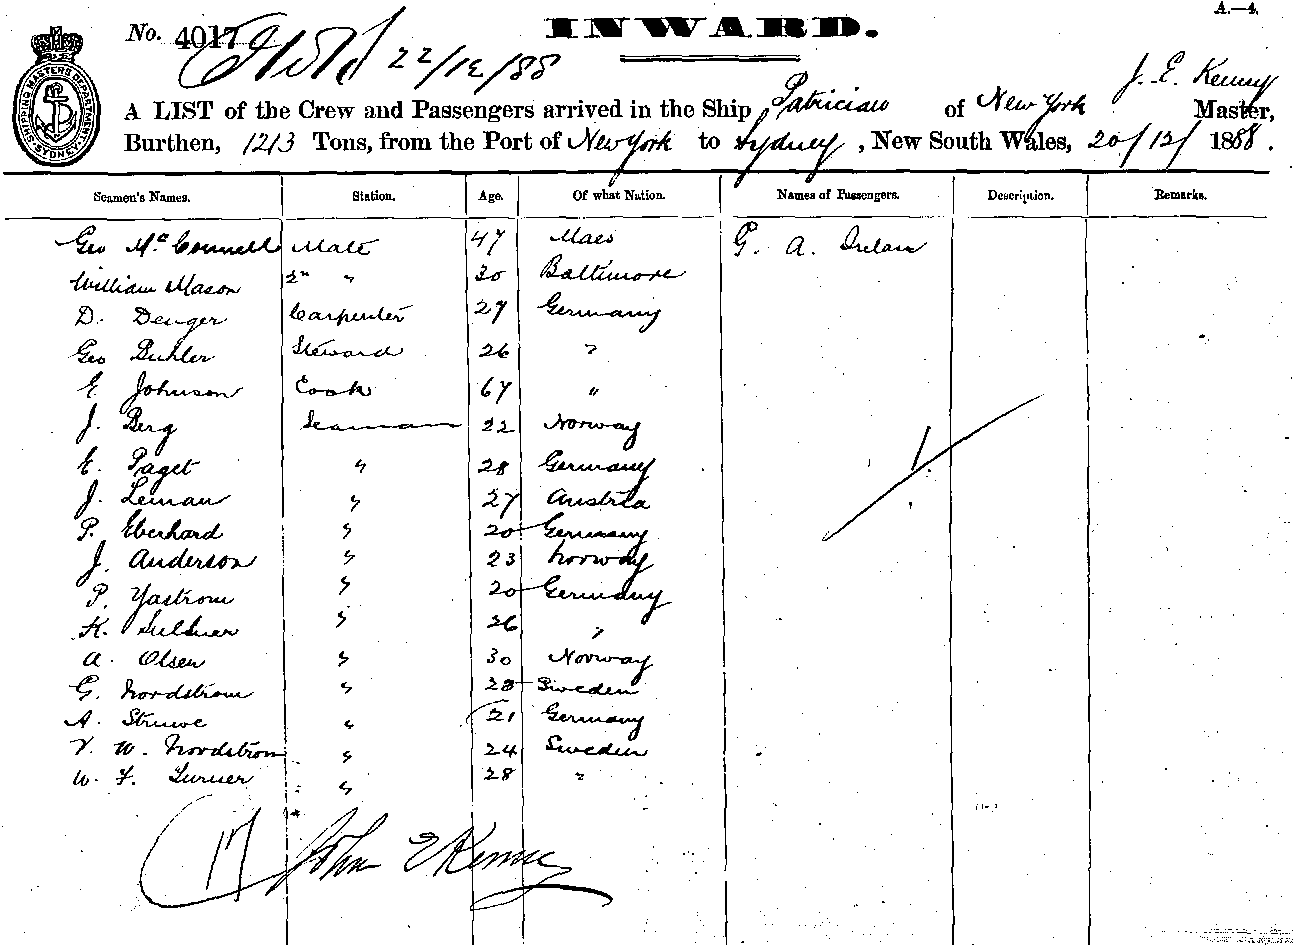 A.—4.
INWARD.
No. 4017 22/12/88
SHIPPING MASTERS DEPARTMENT SYDNEY
J. E. Kenny
A LIST of the Crew and Passengers arrived in the Ship Patrician of New York Master,
Burthen, 1213 Tons, from the Port of New York to Sydney, New South Wales, 20/12/1888.
Seamen's Names. Station. Age. Of what Nation. Names of Passengers. Description. Remarks.
Geo McConnell Mate 47 G. A.
William Mason 2nd " 30 Baltimore
D. Denger Carpenter 27 Germany
Geo Buhler Steward 26 "
E Johnson Cook 67 "
J. Berg Seaman 22 Norway
E. Paget " 28 Germany
J. Leman " 27 Austria
P. Eberhard " 20 Germany
J. Anderson " 23 Norway
P. Yastrom " 20 Germany
K. " 26 "
A. Olsen " 30 Norway
G. Nordstrom " 23 Sweden
A. Struwe " 21 Germany
V. W. Nordstrom " 24 Sweden
W. F. Turner " 28 "
17 John E Kenny